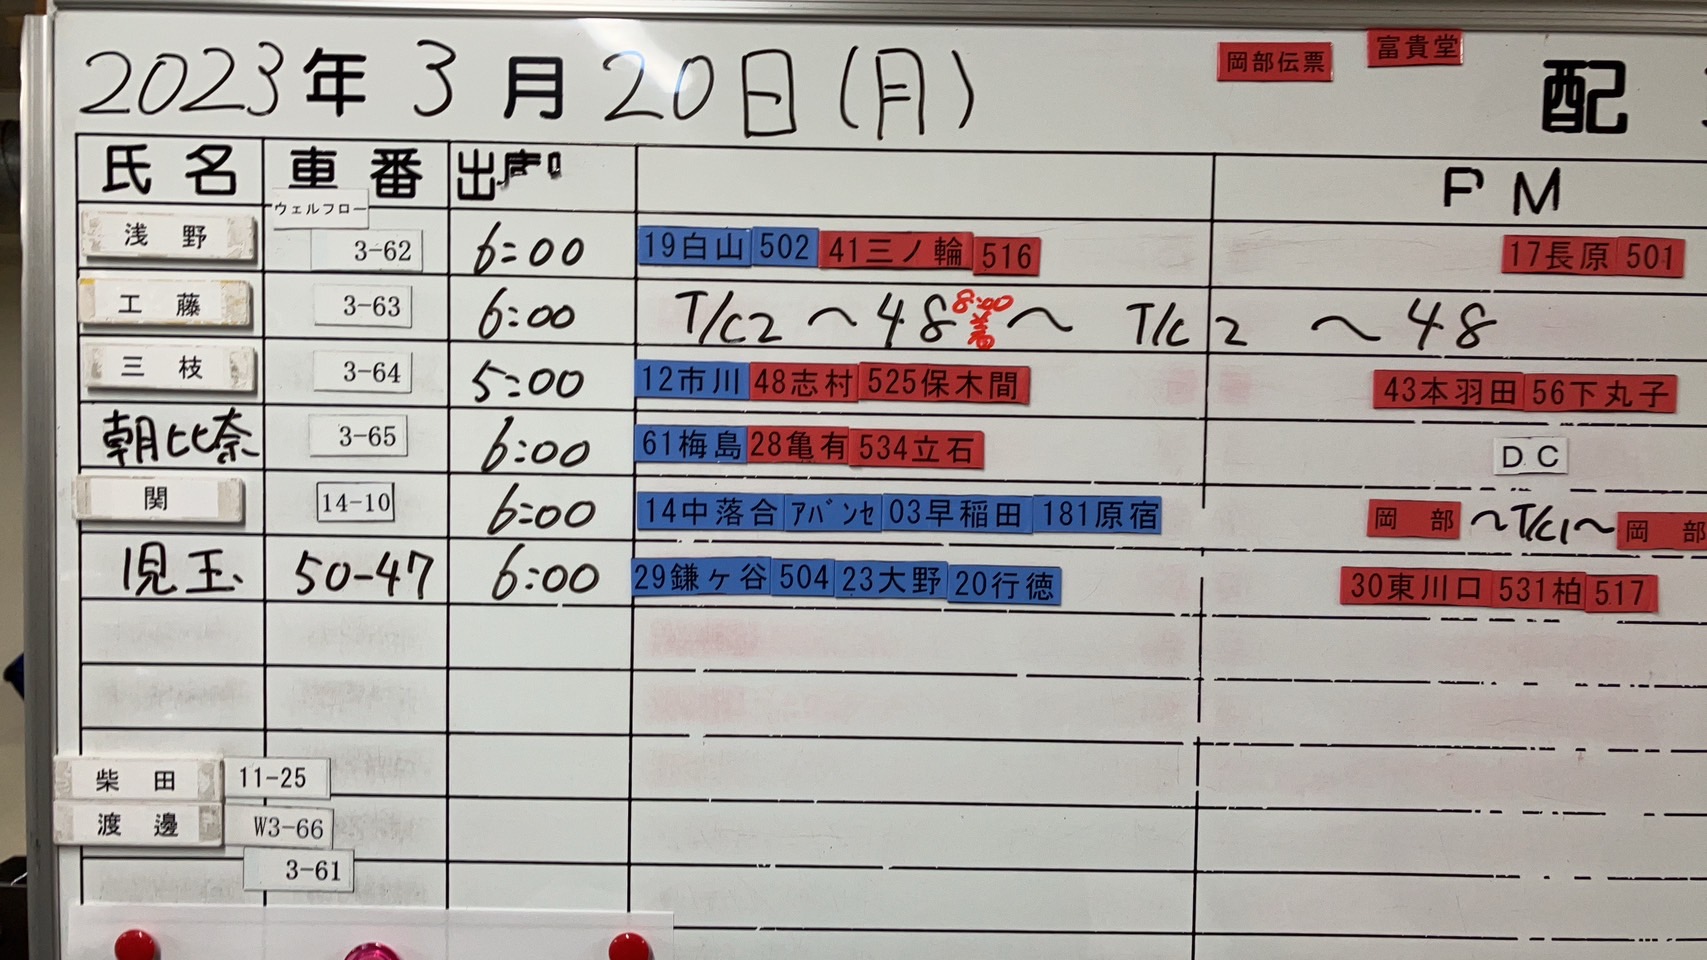 岡部伝票 富貴堂
2023年 3月 20日(月) 配
氏名 車番 出庫 PM
ウェルフロー
浅野 3-62 6:00 19白山 502 41三ノ輪 516 17長原 501
工藤 3-63 6:00 T/C2 〜 48 8:00着 〜 T/C2 〜 48
三枝 3-64 5:00 12市川 48志村 525保木間 43本羽田 56下丸子
朝比奈 3-65 6:00 61梅島 28亀有 534立石 DC
関 14-10 6:00 14中落合 アバンセ 03早稲田 181原宿 岡部 〜T/C1〜 岡部
児玉 50-47 6:00 29鎌ヶ谷 504 23大野 20行徳 30東川口 531柏 517
柴田 11-25
渡邊 W3-66
3-61